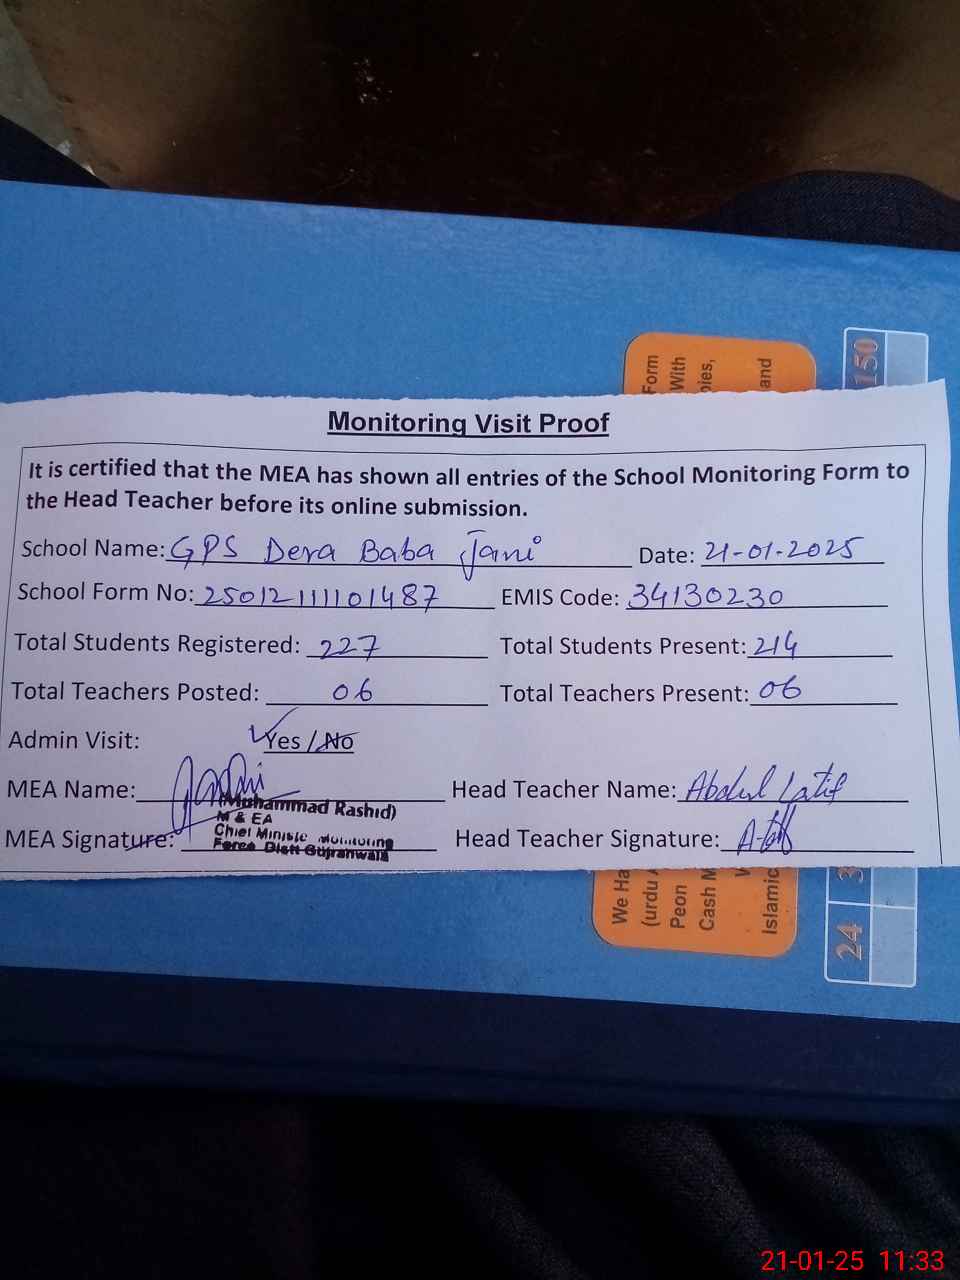 Form
With
pies,
and
150
Monitoring Visit Proof
It is certified that the MEA has shown all entries of the School Monitoring Form to
the Head Teacher before its online submission.
School Name: GPS Dera Baba Jani Date: 21-01-2025
School Form No: 25012111101487 EMIS Code: 34130230
Total Students Registered: 227 Total Students Present: 214
Total Teachers Posted: 06 Total Teachers Present: 06
Admin Visit: Yes / No
MEA Name: Head Teacher Name: Abdul Latif
(Muhammad Rashid)
M & EA
MEA Signature: Head Teacher Signature:
Chief Monitoring
Force Distt Gujranwala
We Ha
(urdu
Peon
Cash M
Islamic
24 3
21-01-25 11:33